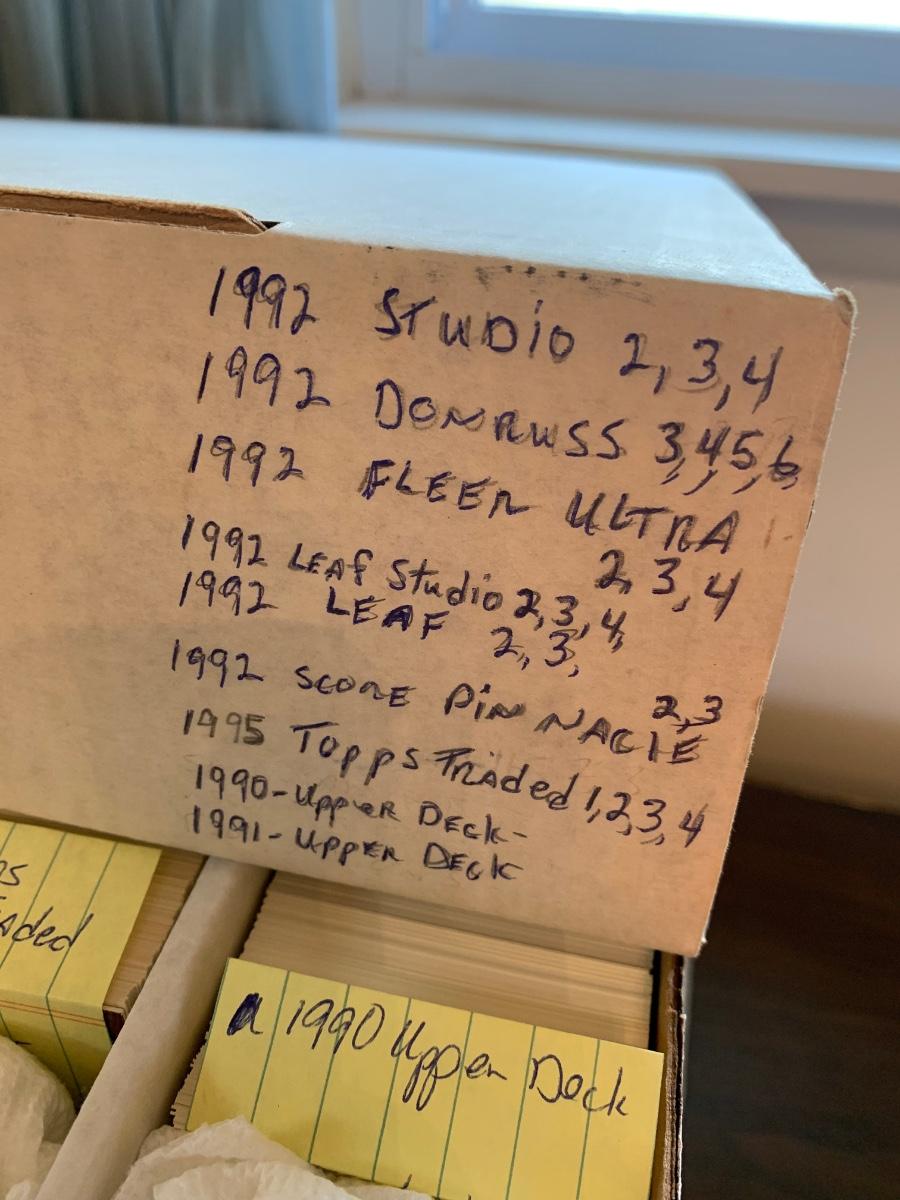 1992 STUDIO 2,3,4
1992 DONRUSS 3,4,5,6
1992 FLEER ULTRA
2,3,4
1992 LEAf Studio 2,3,4,
1992 LEAF 2,3,
1992 SCORE PiNNACIE 2,3
1995 Topps TRADed 1,2,3,4
1990-Upper Deck-
1991-UppER DEck
1990 Upper Deck